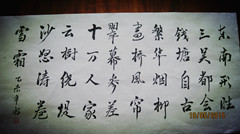 东南形胜
三吴都会
钱塘自古
繁华烟柳
画桥风帘
翠幕参差
十万人家
云树绕堤
沙怒涛卷
雪霜 乙未